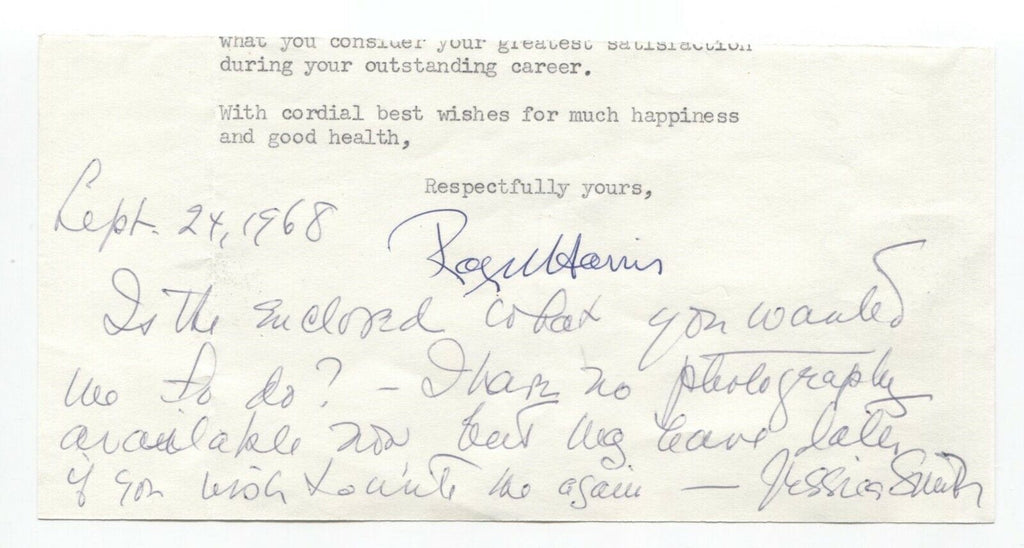 what you consider your greatest satisfaction
during your outstanding career.
With cordial best wishes for much happiness
and good health,
Respectfully yours,
Sept. 24, 1968
Harris
Is the enclosed what you wanted
me to do? — I have no photography
available now but may have later
if you wish to write me again — Jessica Smith